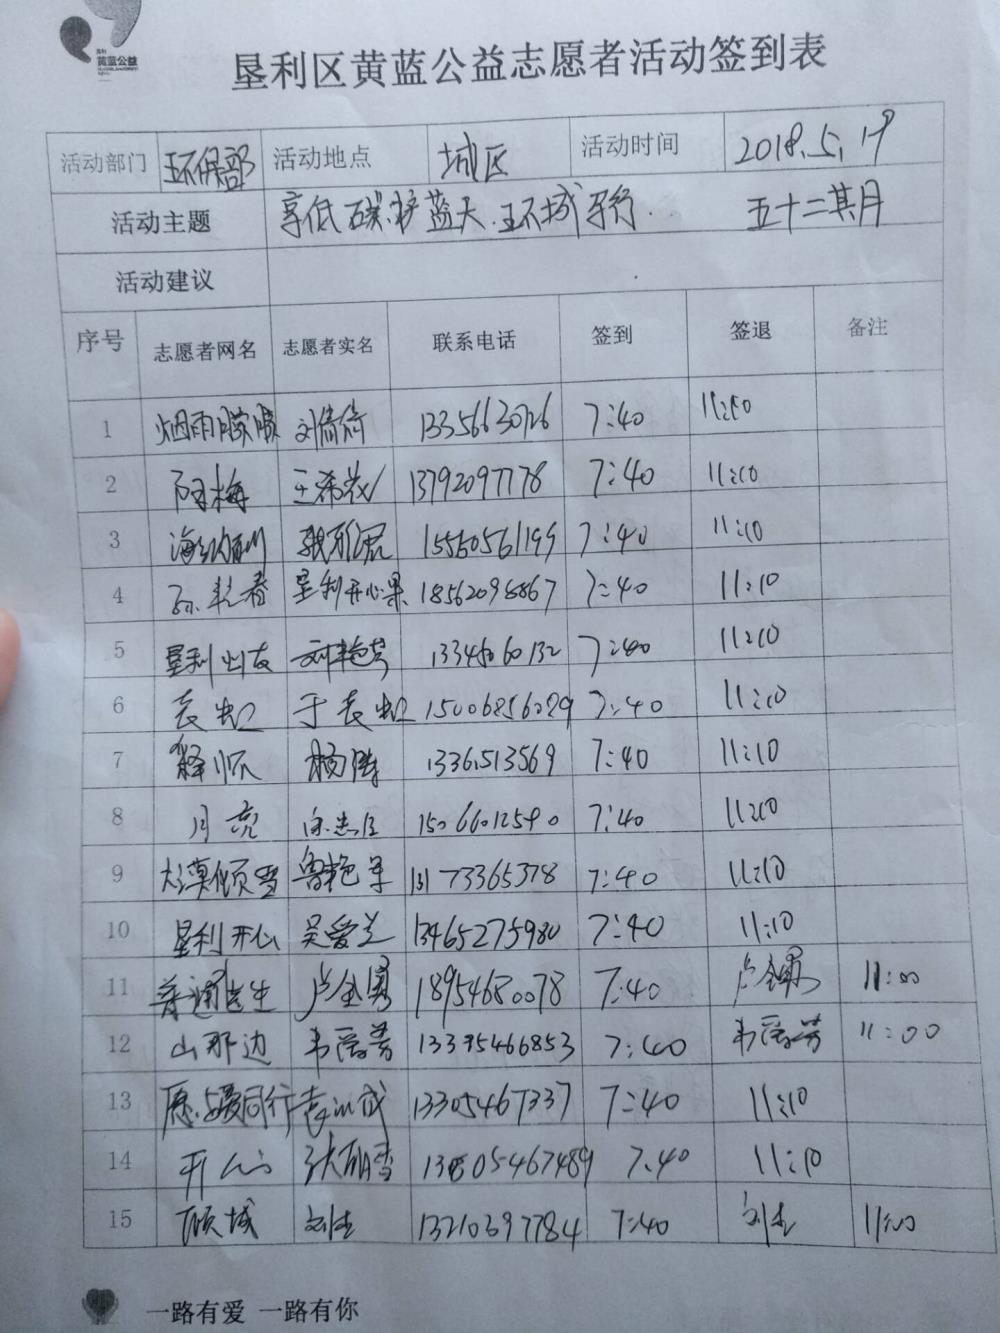 黄蓝公益
垦利区黄蓝公益志愿者活动签到表
活动部门 环保部 活动地点 城区 活动时间 2018.5.19
活动主题 享低碳.护蓝天.环城骑行. 五十二期
活动建议
序号 志愿者网名 志愿者实名 联系电话 签到 签退 备注
1 烟雨朦胧 刘倩倩 13356630726 7:40 11:10
2 阿梅 王希 13792097778 7:40 11:10
3 15560561199 7:40 11:10
4 垦利开心果 7:40 11:10
5 垦利山友 刘艳 7:40 11:10
6 袁虹 于袁虹 7:40 11:10
7 释怀 杨 7:40 11:10
8 月亮 15066012590 7:40 11:10
9 大漠倾雪 鲁艳 13173365378 7:40 11:10
10 垦利开心 吴爱兰 13465275980 7:40 11:10
11 普通医生 卢金勇 18954680078 7:40 卢金勇 11:00
12 山那边 韦 芳 13395466853 7:40 韦 芳 11:00
13 愿与爱同行 13305467337 7:40 11:10
14 开心 张 7:40 11:10
15 倾城 刘 13210397784 7:40 刘 11:00
一路有爱 一路有你